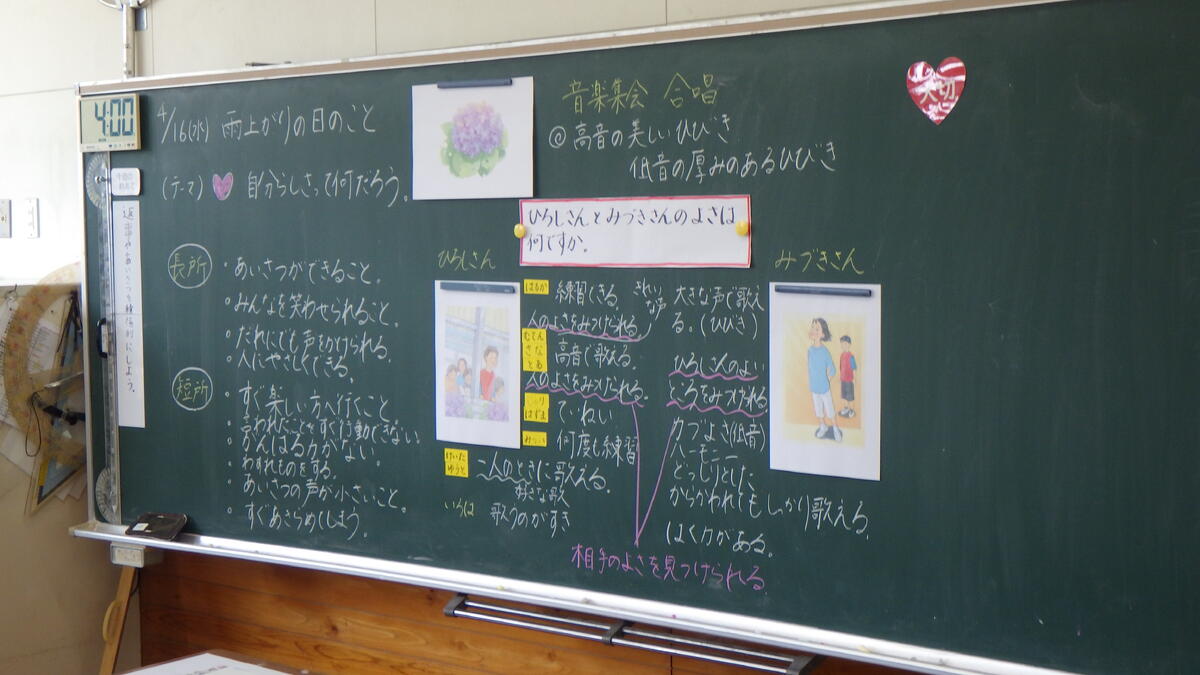 4:00
4/16(水) 雨上がりの日のこと
(テーマ) 自分らしさって何だろう。
今週のめあて
返事やあいさつを積極的にしよう。
長所
・あいさつができること。
・みんなを笑わせられること。
・だれにでも声をかけられる。
・人にやさしくできる。
短所
・すぐ楽しい方へ行くこと
・言われたことをすぐ行動できない
・がんばる力がない
・わすれものをする。
・あいさつの声が小さいこと。
・すぐあきらめてしまう。
音楽集会 合唱
◎高音の美しいひびき
低音の厚みのあるひびき
大切に
ひろしさんとみづきさんのよさは
何ですか。
ひろしさん
はるか
練習できる。
きれいな声
人のよさをみつけられる
高音で歌える。
人のよさをみつけられる。
ていねい
何度も練習
けいた
ゆうと
二人のときに歌える。
好きな歌
いろは
歌うのがすき
みづきさん
大きな声で歌え
る。(ひびき)
ひろしさんのよい
ところをみつけれる。
力づよさ(低音)
ハーモニー
どっしりとした
からかわれてもしっかり歌える
はく力がある。
相手のよさを見つけられる